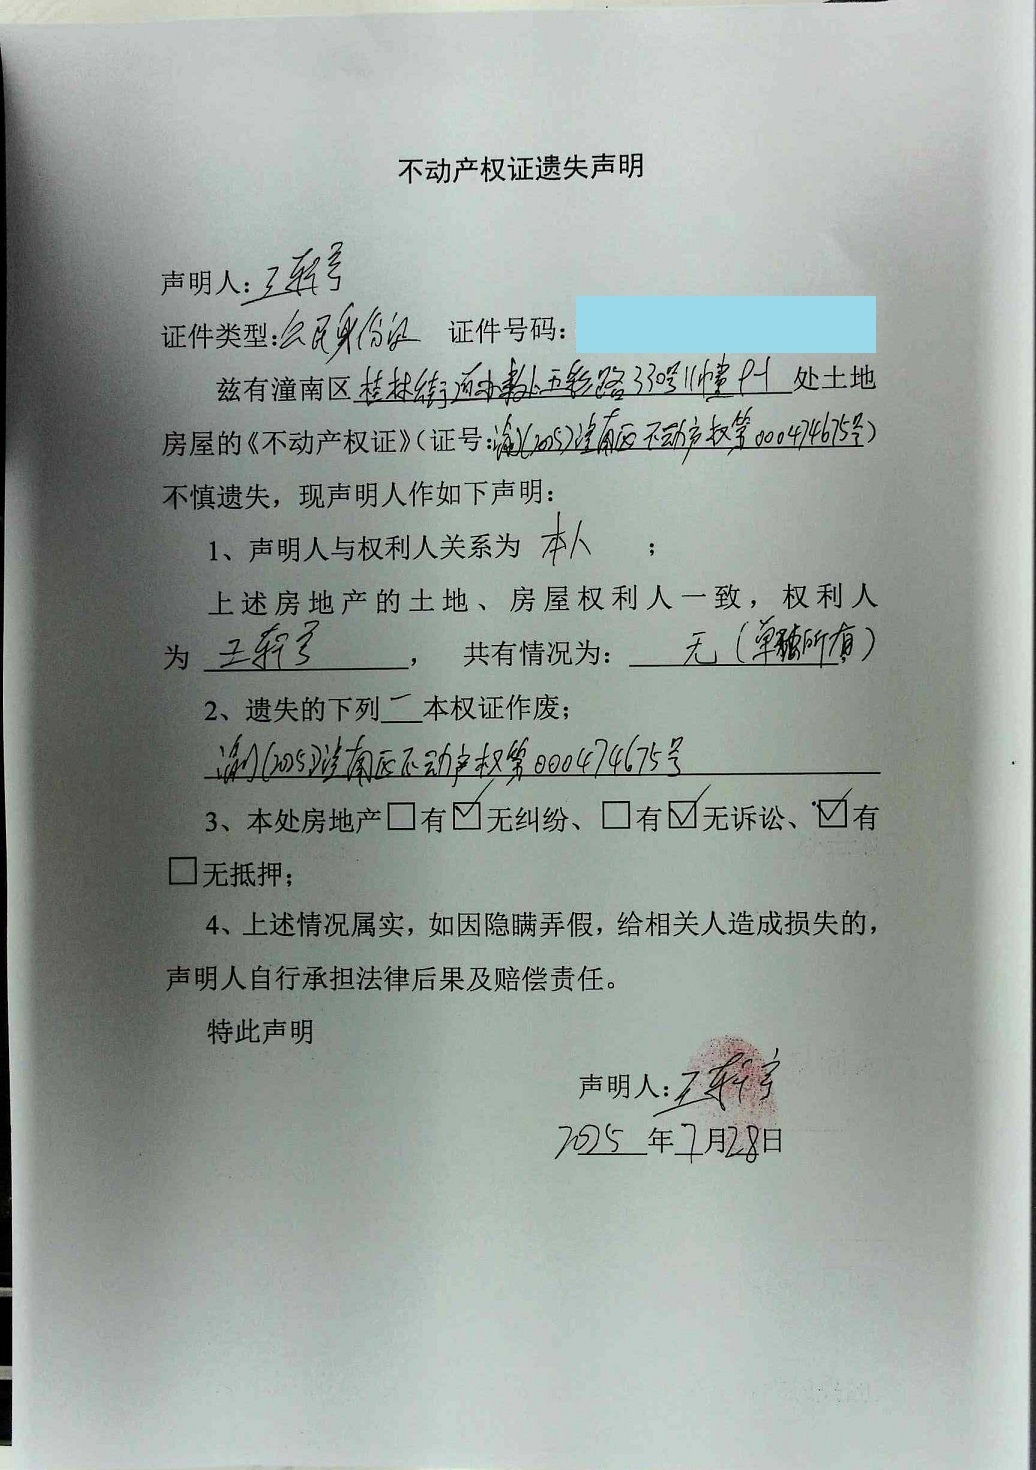 不动产权证遗失声明
声明人：王轩宇
证件类型：公民身份证 证件号码：
兹有潼南区桂林街道办事处五彩路330号11幢9-1处土地
房屋的《不动产权证》（证号：渝(2025)潼南区不动产权第000474675号）
不慎遗失，现声明人作如下声明：
1、声明人与权利人关系为 本人 ；
上述房地产的土地、房屋权利人一致，权利人
为 王轩宇 ， 共有情况为： 无（单独所有）
2、遗失的下列一本权证作废；
渝(2025)潼南区不动产权第000474675号
3、本处房地产□有☑无纠纷、□有☑无诉讼、☑有
□无抵押；
4、上述情况属实，如因隐瞒弄假，给相关人造成损失的，
声明人自行承担法律后果及赔偿责任。
特此声明
声明人：王轩宇
2025年7月28日